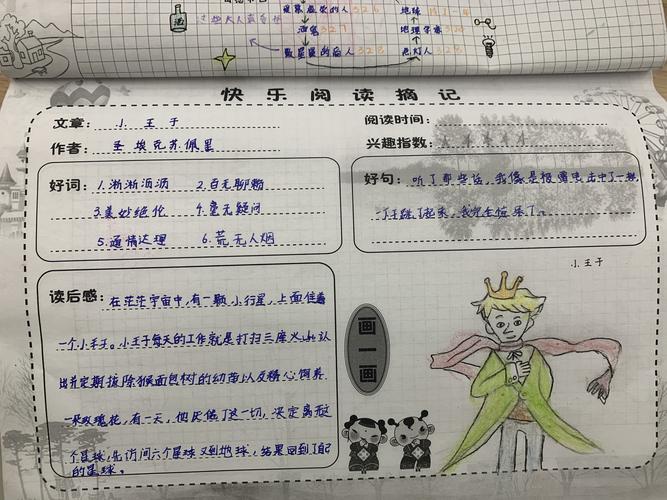 这些大人真奇怪
爱虚荣的人 326
酒鬼 327
数星星的商人 328
地球
地理学家
点灯人
酒
快乐阅读摘记
文章：小王子
阅读时间：
作者：圣埃克苏佩里
兴趣指数：
好词：1.淅淅沥沥 2.百无聊赖
3.美妙绝伦 4.毫无疑问
5.通情达理 6.荒无人烟
好句：听了那些话，我像是被雷电击中了一般，
一下跳了起来，我完全惊呆了。
读后感：在茫茫宇宙中，有一颗小行星，上面住着
一个小王子。小王子每天的工作就是打扫三座火山以
及定期拔除猴面包树的幼苗以及精心饲养
一朵玫瑰花，有一天，他厌倦了这一切，决定离开这
个星球，先访问六个星球又到地球，结果回到了自己
的星球。
画一画
小王子